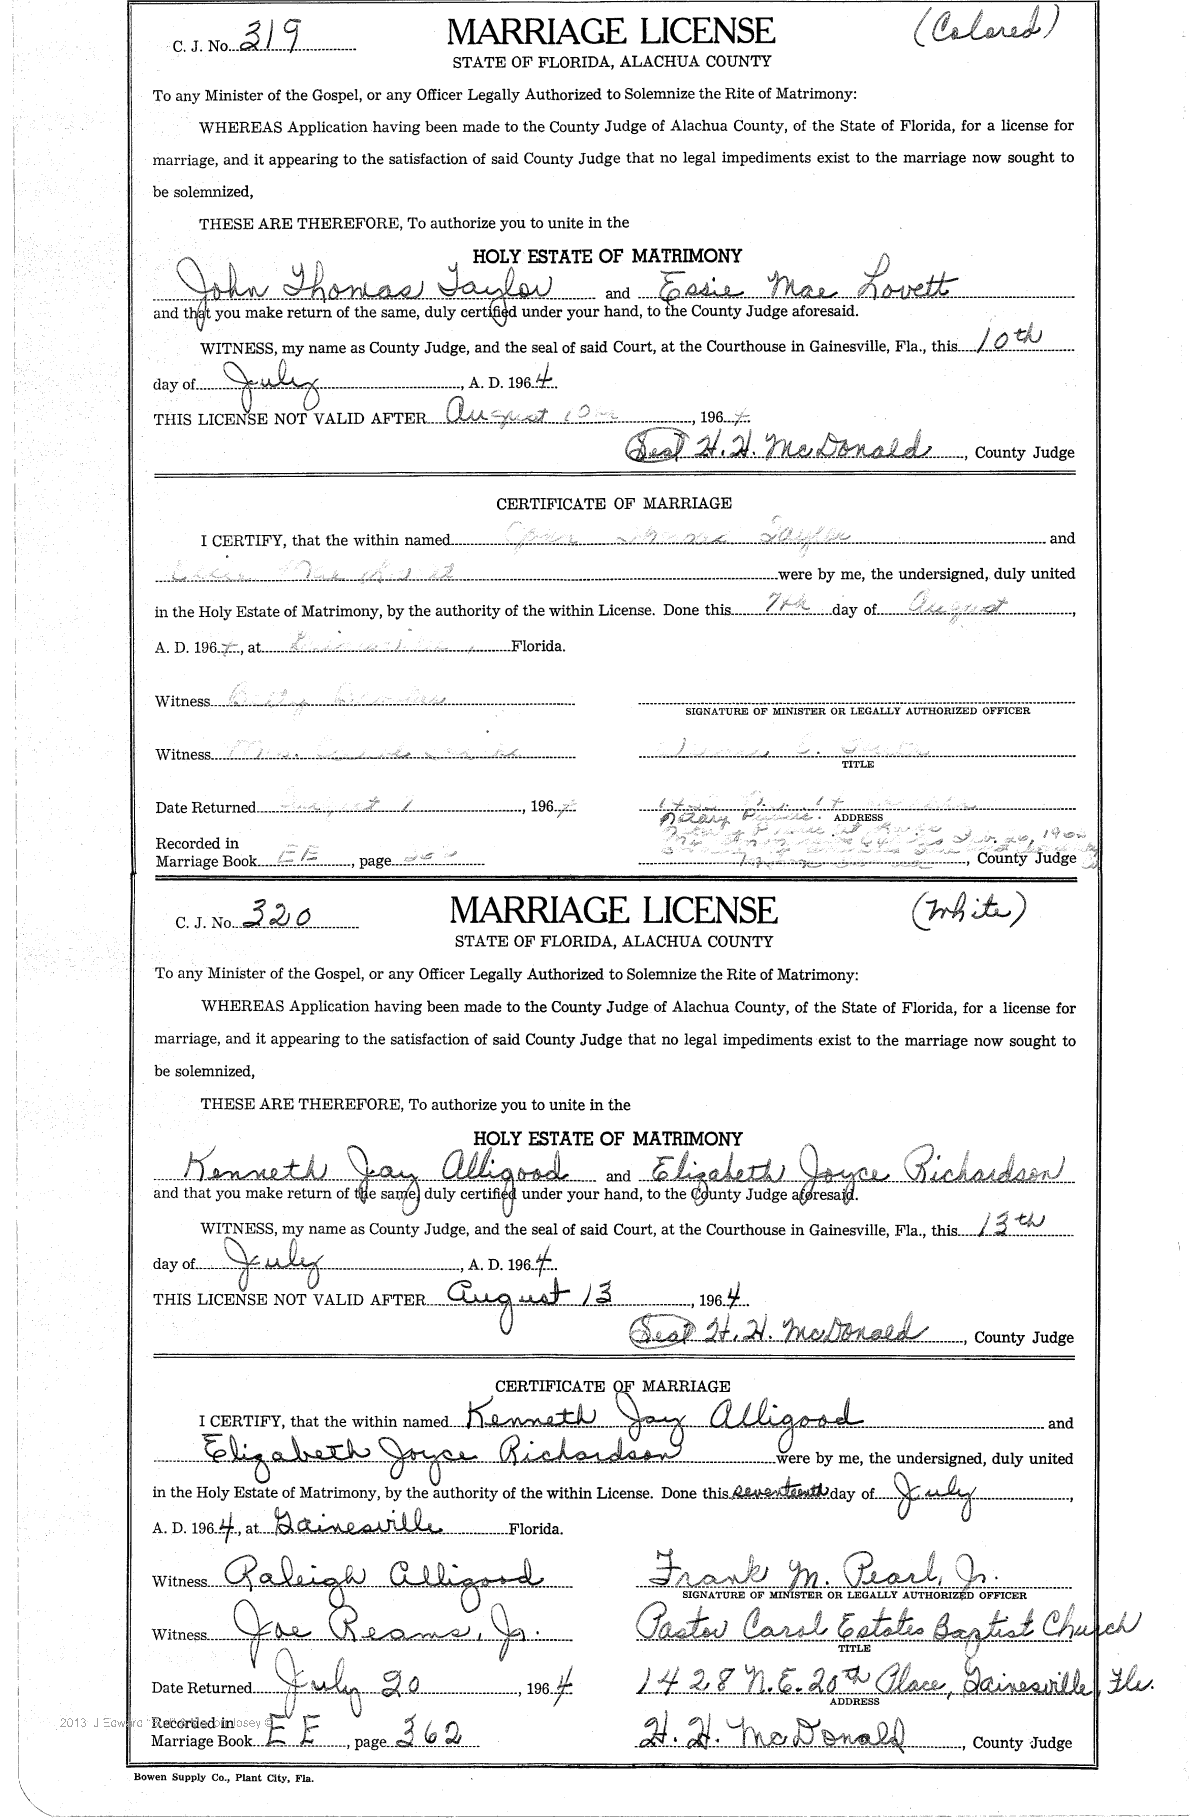 C. J. No. 319 MARRIAGE LICENSE (Colored)
STATE OF FLORIDA, ALACHUA COUNTY
To any Minister of the Gospel, or any Officer Legally Authorized to Solemnize the Rite of Matrimony:
WHEREAS Application having been made to the County Judge of Alachua County, of the State of Florida, for a license for
marriage, and it appearing to the satisfaction of said County Judge that no legal impediments exist to the marriage now sought to
be solemnized,
THESE ARE THEREFORE, To authorize you to unite in the
HOLY ESTATE OF MATRIMONY
John Thomas Taylor and Essie Mae Lovett
and that you make return of the same, duly certified under your hand, to the County Judge aforesaid.
WITNESS, my name as County Judge, and the seal of said Court, at the Courthouse in Gainesville, Fla., this 10th
day of July, A. D. 1964
THIS LICENSE NOT VALID AFTER August 10th, 1964
Seal H. H. McDonald, County Judge
CERTIFICATE OF MARRIAGE
I CERTIFY, that the within named Thomas Taylor and
Essie Mae Lovett were by me, the undersigned, duly united
in the Holy Estate of Matrimony, by the authority of the within License. Done this 7th day of August,
A. D. 1964, at Gainesville, Florida.
Witness
SIGNATURE OF MINISTER OR LEGALLY AUTHORIZED OFFICER
Witness Mrs.
TITLE
Date Returned August 7, 1964
Notary Public. ADDRESS
Recorded in
Marriage Book EE, page, County Judge
C. J. No. 320 MARRIAGE LICENSE (White)
STATE OF FLORIDA, ALACHUA COUNTY
To any Minister of the Gospel, or any Officer Legally Authorized to Solemnize the Rite of Matrimony:
WHEREAS Application having been made to the County Judge of Alachua County, of the State of Florida, for a license for
marriage, and it appearing to the satisfaction of said County Judge that no legal impediments exist to the marriage now sought to
be solemnized,
THESE ARE THEREFORE, To authorize you to unite in the
HOLY ESTATE OF MATRIMONY
Kenneth Jay Alligood and Elizabeth Joyce Richardson
and that you make return of the same, duly certified under your hand, to the County Judge aforesaid.
WITNESS, my name as County Judge, and the seal of said Court, at the Courthouse in Gainesville, Fla., this 13th
day of July, A. D. 1964
THIS LICENSE NOT VALID AFTER August 13, 1964
Seal H. H. McDonald, County Judge
CERTIFICATE OF MARRIAGE
I CERTIFY, that the within named Kenneth Jay Alligood and
Elizabeth Joyce Richardson were by me, the undersigned, duly united
in the Holy Estate of Matrimony, by the authority of the within License. Done this seventeenth day of July,
A. D. 1964, at Gainesville Florida.
Witness Raleigh Alligood Frank M. Pearl, Jr.
SIGNATURE OF MINISTER OR LEGALLY AUTHORIZED OFFICER
Witness Joe Reams, Jr. Pastor Carol Estates Baptist Church
TITLE
Date Returned July 20, 1964 1428 N.E. 20th Place, Gainesville, Fla.
ADDRESS
Recorded in
Marriage Book EE, page 362 H. H. McDonald, County Judge
Bowen Supply Co., Plant City, Fla.